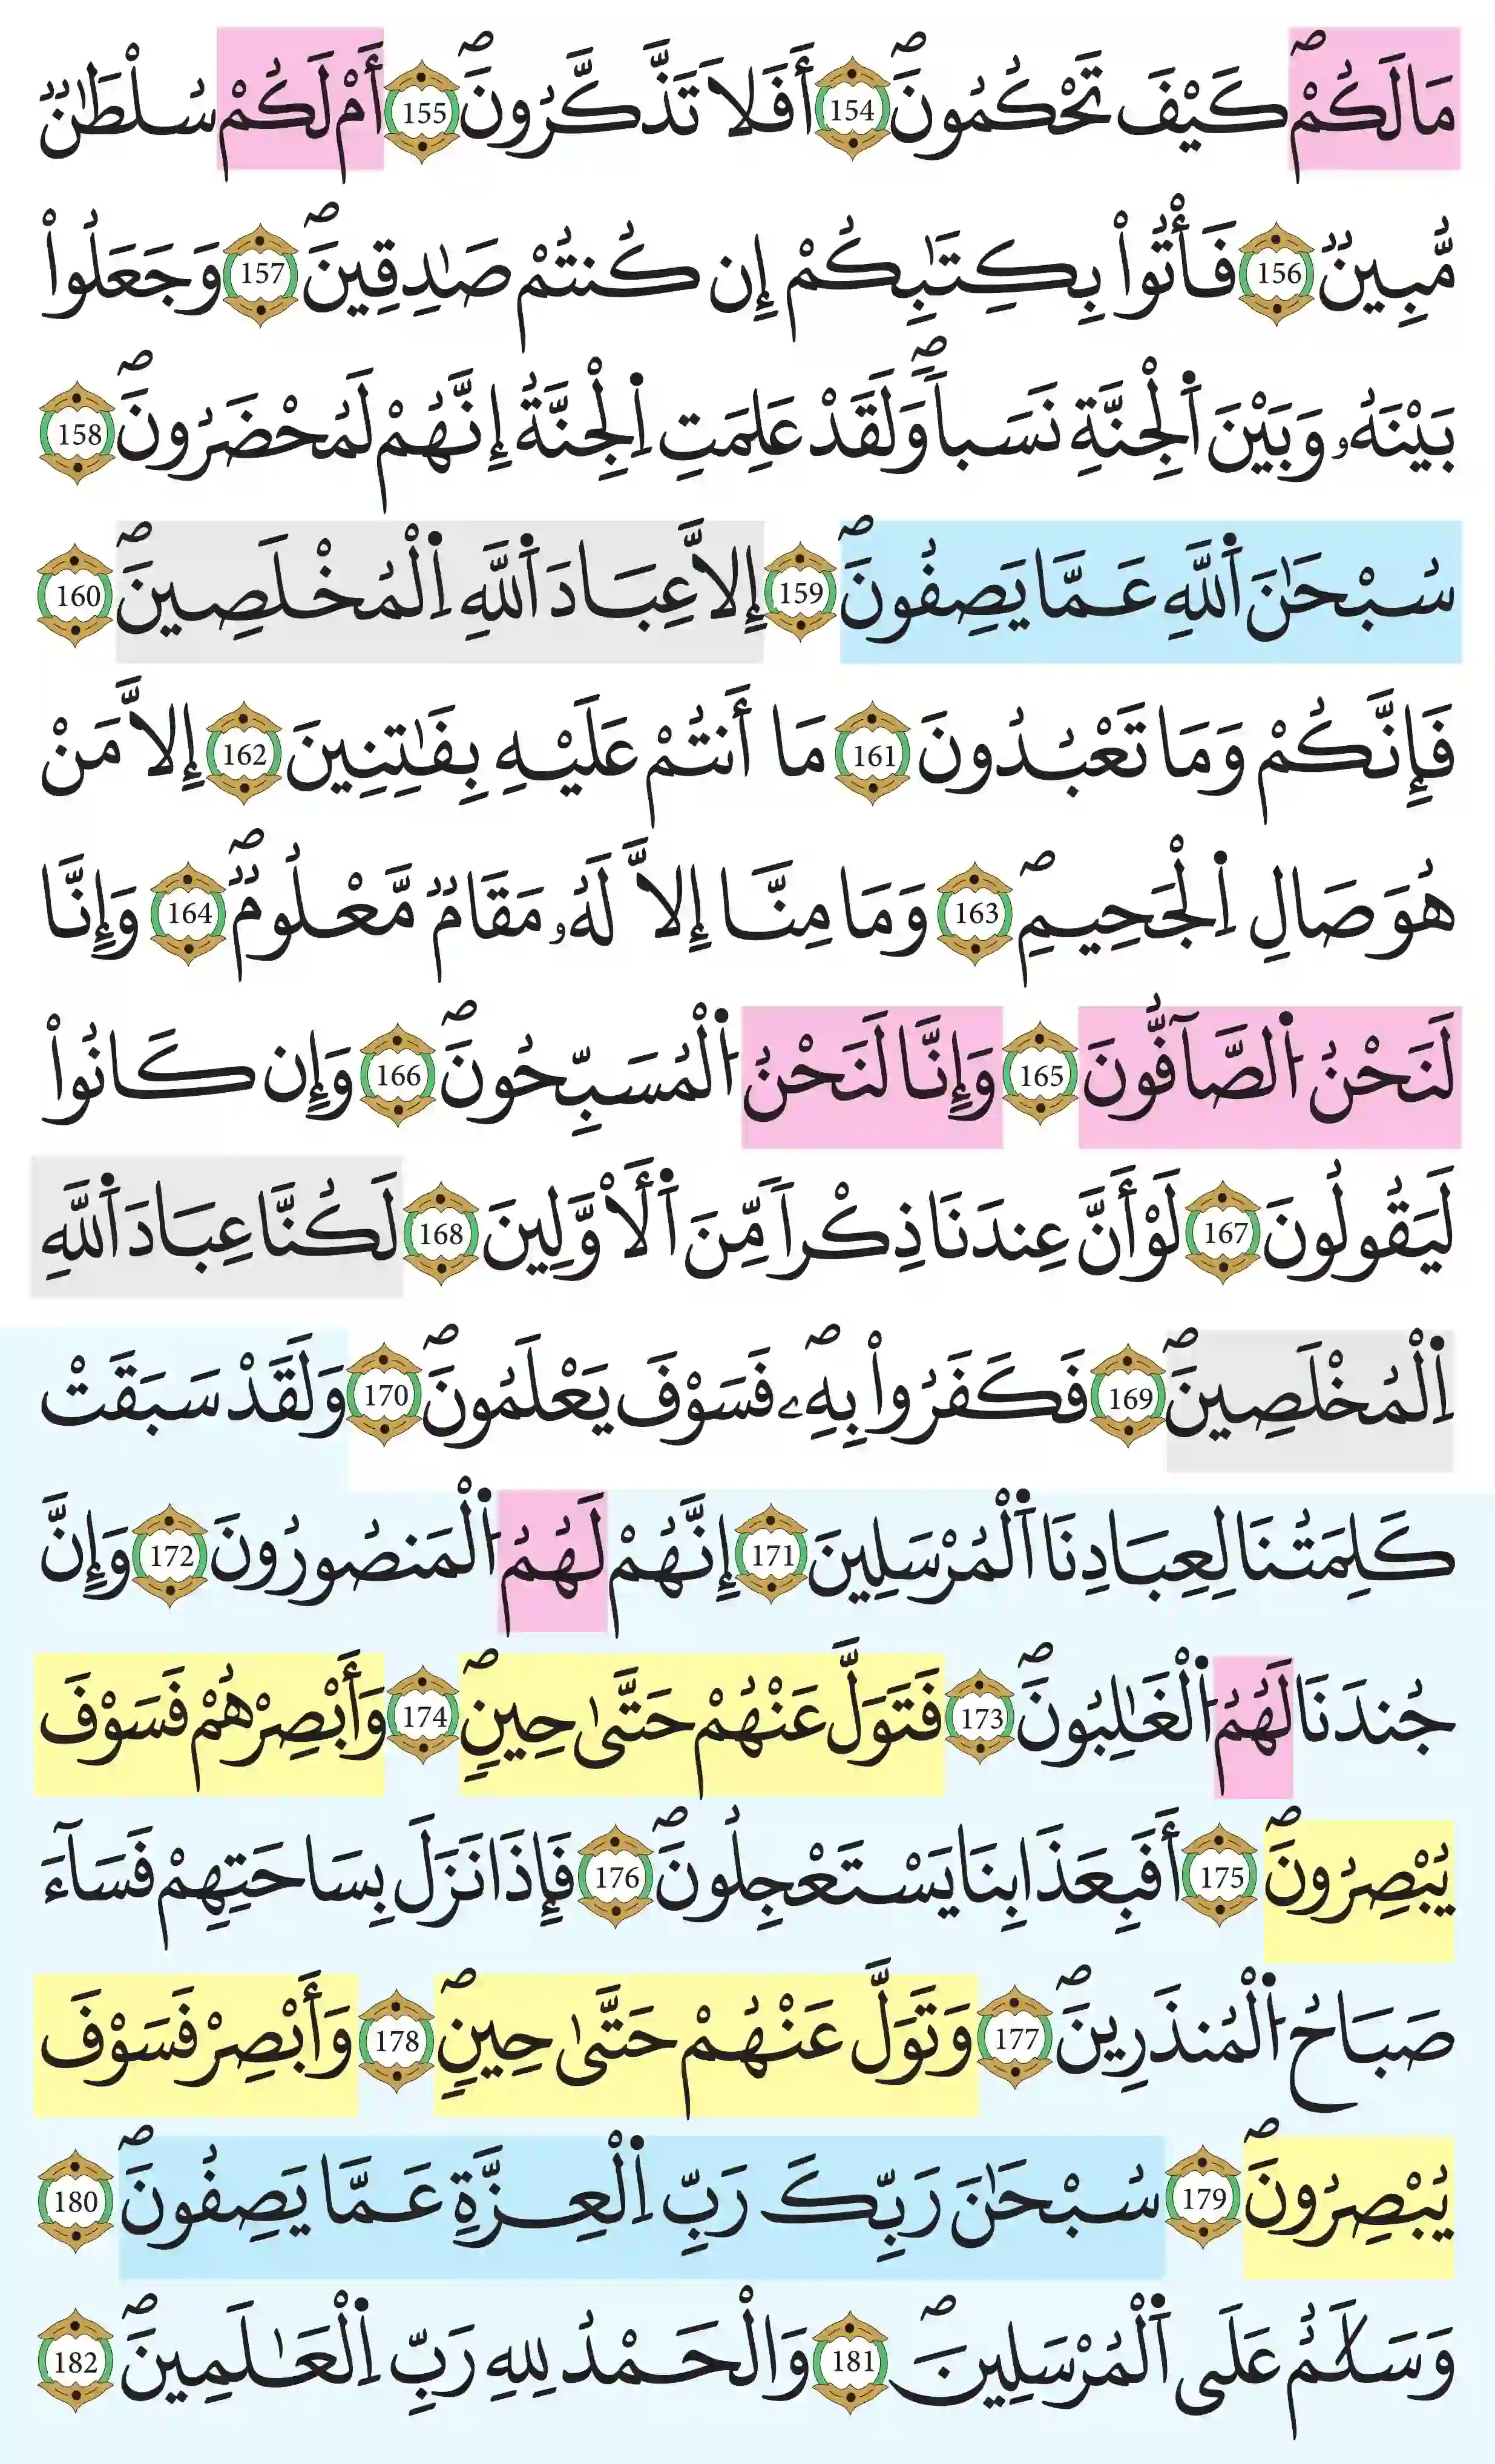 مَا لَكُمْۖ كَيْفَ تَحْكُمُونَۖ 154 أَفَلَا تَذَّكَّرُونَۖ 155 أَمْ لَكُمْ سُلْطَٰنٞ
مُّبِينٞ 156 فَأْتُواْ بِكِتَٰبِكُمْ إِن كُنتُمْ صَٰدِقِينَۖ 157 وَجَعَلُواْ
بَيْنَهُۥ وَبَيْنَ اَ۬لْجِنَّةِ نَسَباٗۖ وَلَقَدْ عَلِمَتِ اِ۬لْجِنَّةُ إِنَّهُمْ لَمُحْضَرُونَۖ 158
سُبْحَٰنَ اَ۬للَّهِ عَمَّا يَصِفُونَۖ 159 إِلَّا عِبَادَ اَ۬للَّهِ اِ۬لْمُخْلَصِينَۖ 160
فَإِنَّكُمْ وَمَا تَعْبُدُونَ 161 مَا أَنتُمْ عَلَيْهِ بِفَٰتِنِينَ 162 إِلَّا مَنْ
هُوَ صَالِ اِ۬لْجَحِيمِۖ 163 وَمَا مِنَّا إِلَّا لَهُۥ مَقَامٞ مَّعْلُومٞۖ 164 وَإِنَّا
لَنَحْنُ اُ۬لصَّآفُّونَ 165 وَإِنَّا لَنَحْنُ اُ۬لْمُسَبِّحُونَۖ 166 وَإِن كَانُواْ
لَيَقُولُونَ 167 لَوْ أَنَّ عِندَنَا ذِكْراٗ مِّنَ اَ۬لْأَوَّلِينَ 168 لَكُنَّا عِبَادَ اَ۬للَّهِ
اِ۬لْمُخْلَصِينَۖ 169 فَكَفَرُواْ بِهِۦۖ فَسَوْفَ يَعْلَمُونَۖ 170 وَلَقَدْ سَبَقَتْ
كَلِمَتُنَا لِعِبَادِنَا اَ۬لْمُرْسَلِينَ 171 إِنَّهُمْ لَهُمُ اُ۬لْمَنصُورُونَ 172 وَإِنَّ
جُندَنَا لَهُمُ اُ۬لْغَٰلِبُونَۖ 173 فَتَوَلَّ عَنْهُمْ حَتَّىٰ حِينٖۖ 174 وَأَبْصِرْهُمْ فَسَوْفَ
يُبْصِرُونَۖ 175 أَفَبِعَذَابِنَا يَسْتَعْجِلُونَۖ 176 فَإِذَا نَزَلَ بِسَاحَتِهِمْ فَسَآءَ
صَبَاحُ اُ۬لْمُنذَرِينَۖ 177 وَتَوَلَّ عَنْهُمْ حَتَّىٰ حِينٖۖ 178 وَأَبْصِرْ فَسَوْفَ
يُبْصِرُونَۖ 179 سُبْحَٰنَ رَبِّكَ رَبِّ اِ۬لْعِزَّةِ عَمَّا يَصِفُونَۖ 180
وَسَلَٰمٌ عَلَى اَ۬لْمُرْسَلِينَۖ 181 وَالْحَمْدُ لِلهِ رَبِّ اِ۬لْعَٰلَمِينَۖ 182